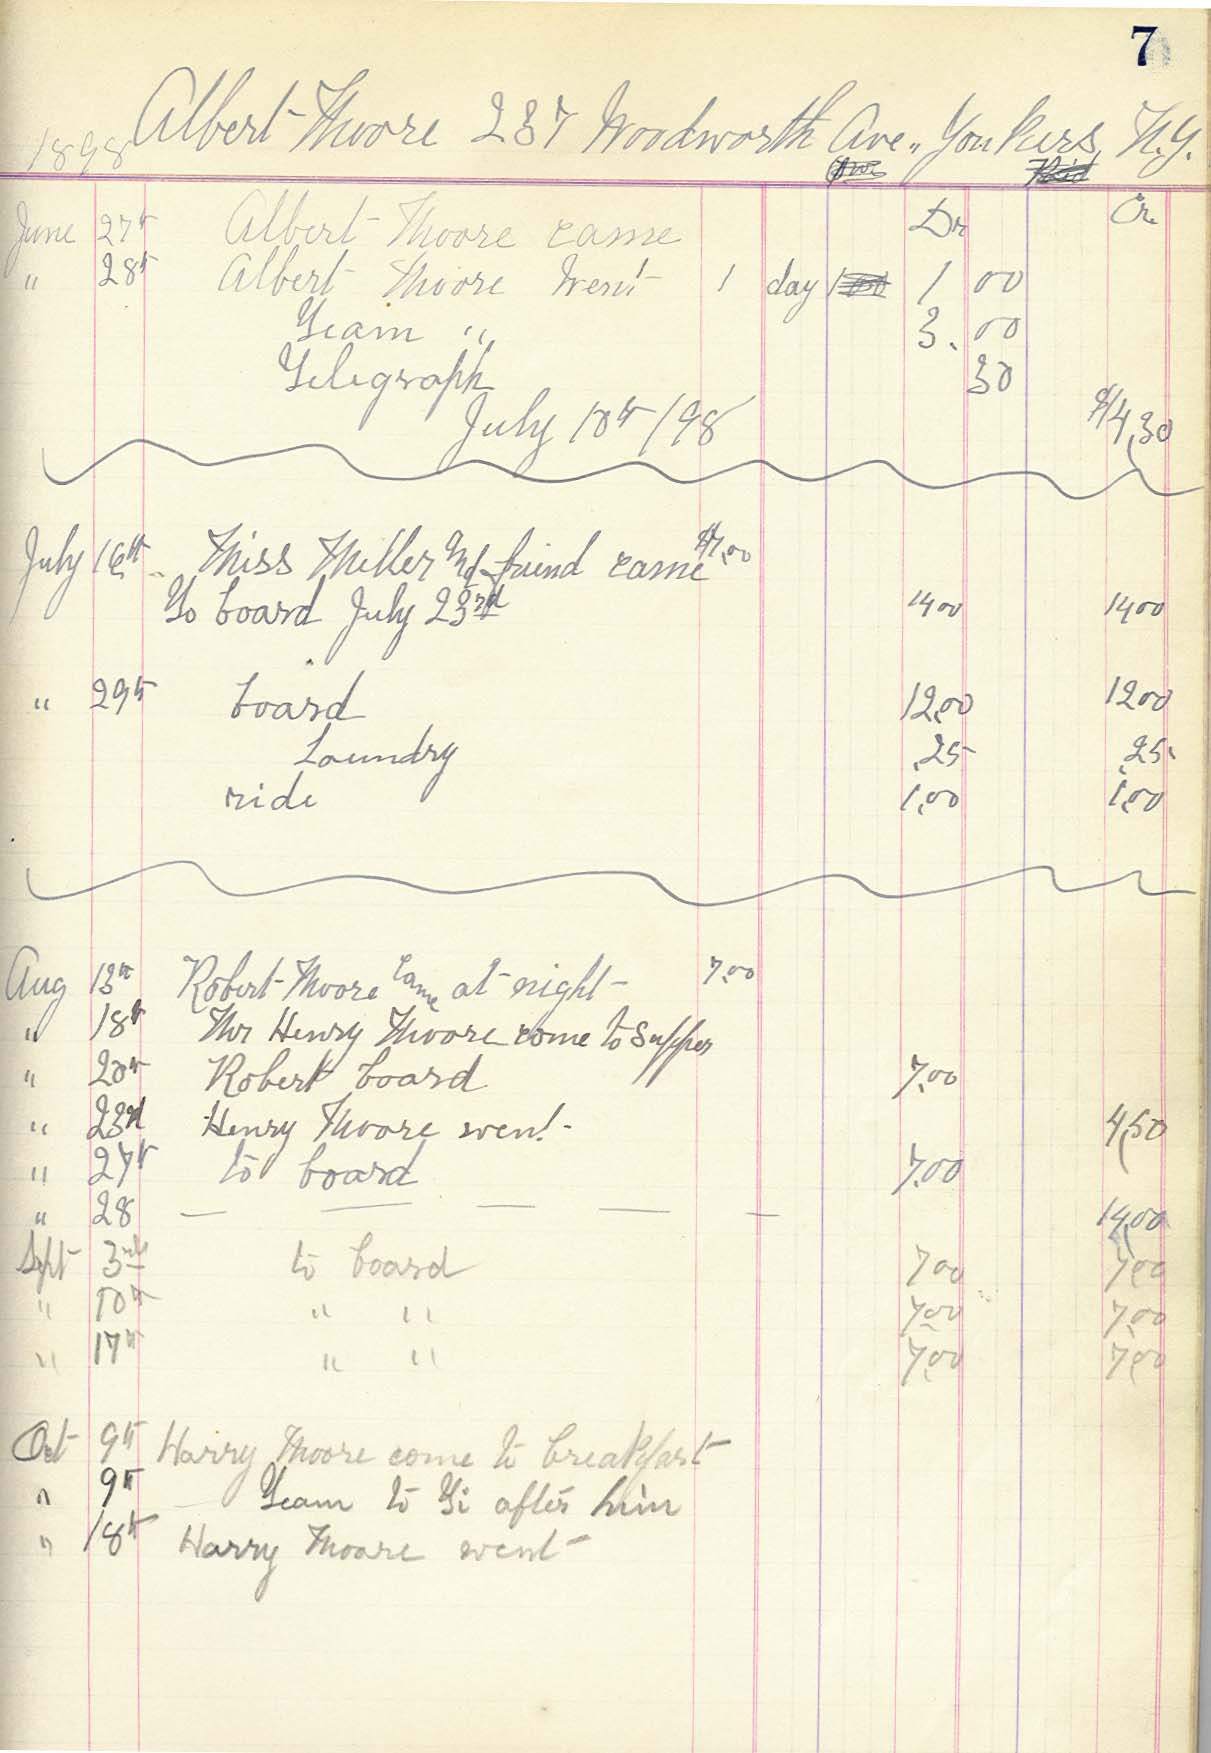 7
Albert Moore 237 Woodworth Ave., Yonkers, N.Y.
1898
Dr Cr.
June 27th Albert Moore came
" 28th Albert Moore Went 1 day 1 00
Team " 3.00
Telegraph 30
July 10th /98 $4.30
July 16th Miss Miller and friend came $7.00
To board July 23rd 14 00 14 00
" 29th board 12.00 12 00
Laundry .25 .25
ride 1.00 1.00
Aug 13th Robert Moore came at night 7.00
" 18th Mr Henry Moore come to supper
" 20th Robert board 7.00
" 23rd Henry Moore went - 4.50
" 27th to board 7.00
" 28 — — — — — 14.00
Sept 3rd to board 7 00 7.00
" 10th " " 7.00 7.00
" 17th " " 7.00 7.00
Oct 9th Harry Moore come to breakfast
" 9th Team to Ti after him
" 18th Harry Moore went